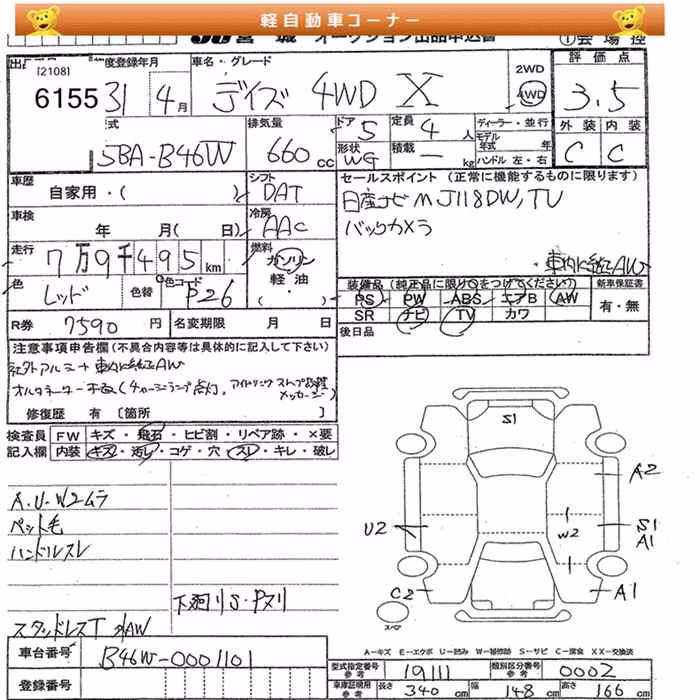 軽自動車コーナー
JU 宮城 オークション出品申込書 ① 会場控
[2108]
6155
度登録年月 31 4月
車名・グレード デイズ 4WD X
2WD 4WD
評価点 3.5
外装 内装
C C
式 5BA-B46W
排気量 660cc
ドア 5 定員 4人
形状 WG 積載 — kg
ディーラー・並行
モデル年式 年式
ハンドル 左・右
車歴 自家用・( )
シフト DAT
セールスポイント (正常に機能するものに限ります)
日産ナビ MJ118DW, TV
バックカメラ
車内に純正AW
車検 年 月(日)
冷房 AAC
走行 7万9千495km
燃料 ガソリン 軽油 ( )
色 レッド 色替 色コード P26
装備品(純正品に限り○をつけてください) 新車保証書
PS PW ABS エアB AW 有・無
SR ナビ TV カワ
後日品
R券 7590円 名変期限 月 日
注意事項申告欄(不具合内容等は具体的に記入して下さい)
社外アルミ+車内に純正AW
オルタネーター不良(チャージランプ点灯、アイドリングストップ故障メッセージ)
修復歴 有〔箇所 〕
検査員記入欄 FW キズ・飛石・ヒビ割・リペア跡・×要
内装 キズ・汚レ・コゲ・穴・スレ・キレ・破レ
A.U.W2ムラ
ペット毛
ハンドルスレ
下廻りS・Pヌリ
スタッドレスT 外AW
S1
A2
U2
W2
S1
A1
C2
A1
スペア
A-キズ E-エクボ U-凹み W-補修跡 S-サビ C-腐食 XX-交換済
車台番号 B46W-0001101
登録番号
型式指定番号参考 19111 類別区分番号参考 0002
車庫証明用参考 長さ 340cm 幅 148cm 高さ 166cm